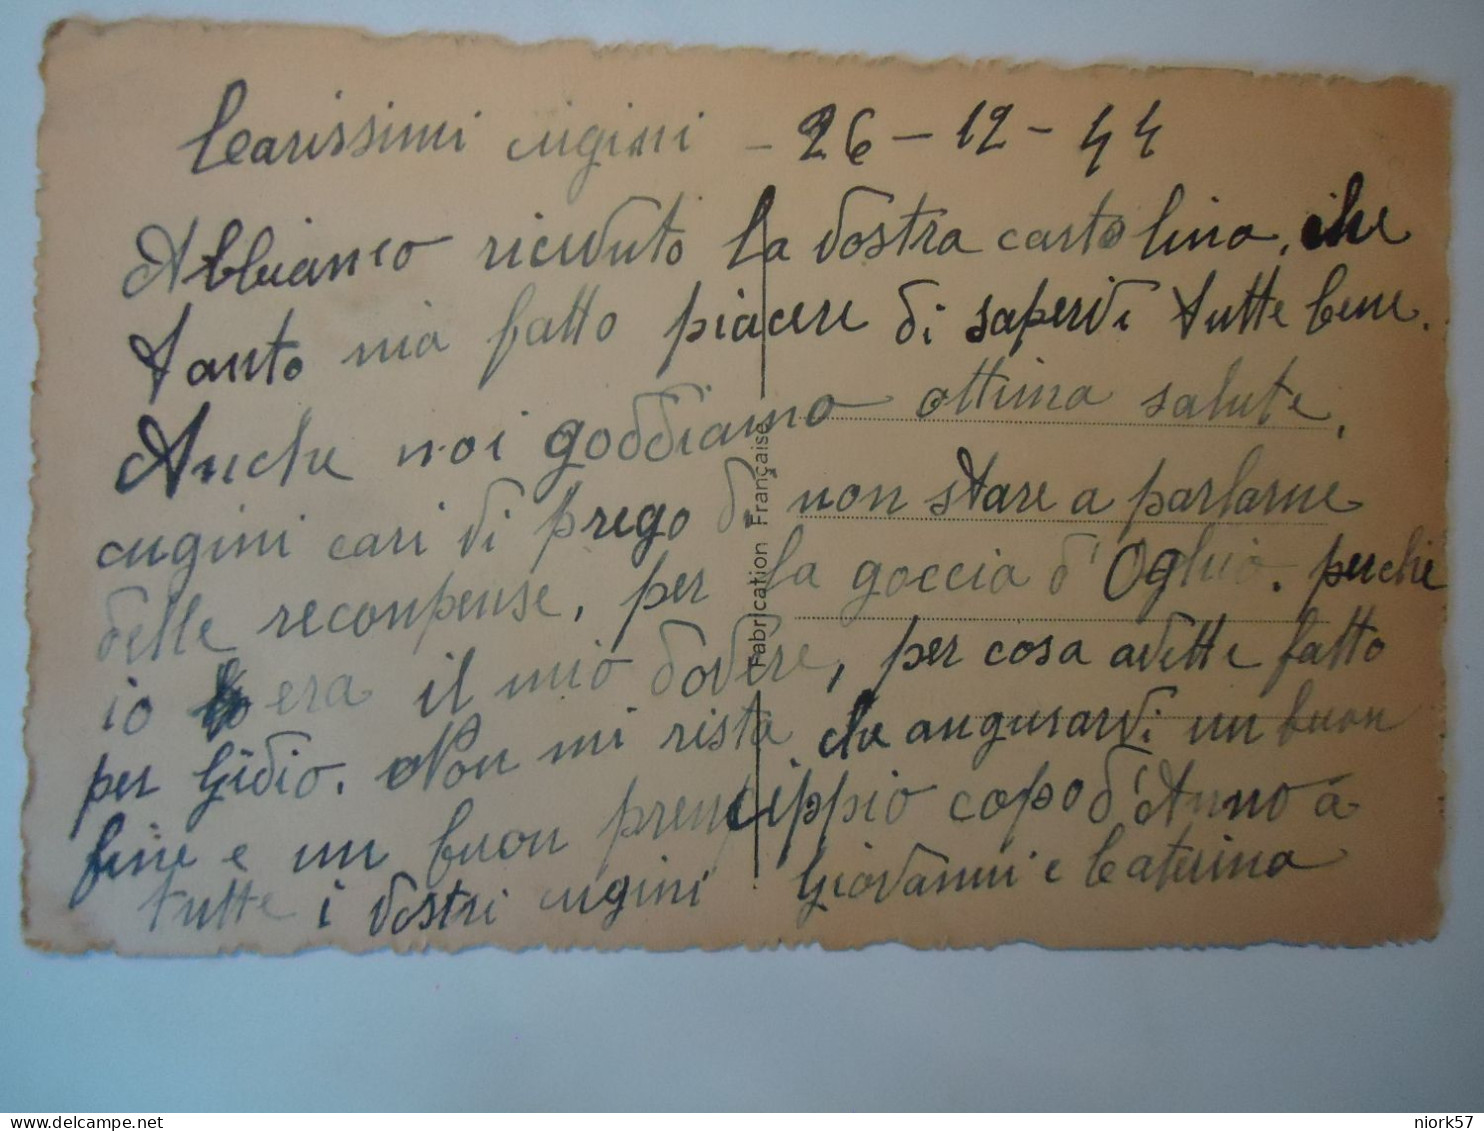 Carissimi cugini - 26-12-44
Abbiamo ricevuto la vostra cartolina, che
tanto mia fatto piacere di sapervi tutte bene.
Anche noi goddiamo ottima salute,
cugini cari vi prego di non stare a parlarne
delle reconpense, per la goccia d'Oglio. perche
io era il mio dovere, per cosa avette fatto
per Gidio. Non mi rista che angurarvi un buon
fine e un buon prencippio capo d'Anno a
tutte i vostri cugini Giovanni e Caterina
Fabrication Française
niork57